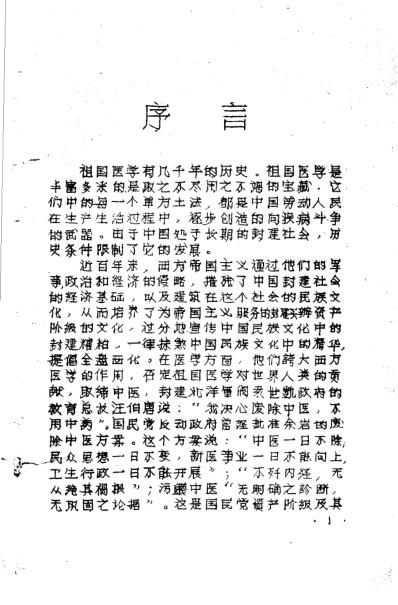 序 言
祖国医学有几千年的历史。祖国医学是
丰富多采的是取之不尽用之不竭的宝藏，它
们中的每一个单方土法，都是中国劳动人民
在生产生活过程中，逐步创造的向疾病斗争
的武器。由于中国处于长期的封建社会，历
史条件限制了它的发展。
近百年来，西方帝国主义通过他们的军
事政治和经济的侵略，摧残了中国封建社会
的经济基础，以及建筑在这个社会的民族文
化，从而培养了为帝国主义服务的买办资产
阶级的文化，过分地宣传中国民族文化中的
封建糟粕，一律抹煞中国民族文化中的精华，
提倡全盘西化。在医学方面，他们夸大西方
医学的作用，否定祖国医学对世界人类的贡
献，取缔中医，封建北洋军阀袁世凯政府的
教育总长汪伯唐说：“我决心废除中医，不
用中药”。国民党反动政府曾经批准余岩的废
除中医方案。这个方案说：“中医一日不除，
民众思想一日不变，新医事业一日不能向上，
卫生行政一日不能开展”；“一不歼内经，无
从绝其祸根”；污蔑中医“无明确之诊断，
无巩固之论据”。这是国民党资产阶级及其
· 1 ·